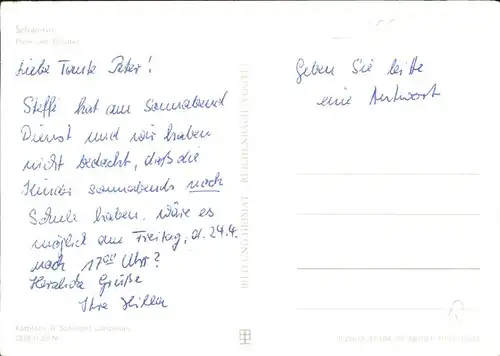 Schwerin
Liebe Tante Peter!
Steffi hat am Sonnabend
Dienst und wir haben
nicht bedacht, daß die
Kinder sonnabends noch
Schule haben. Wäre es
möglich am Freitag, d. 24.4.
nach 17⁰⁰ Uhr?
Herzliche Grüße
Ihre
BILD UND HEIMAT REICHENBACH (VOGTL)
Geben Sie bitte
eine Antwort